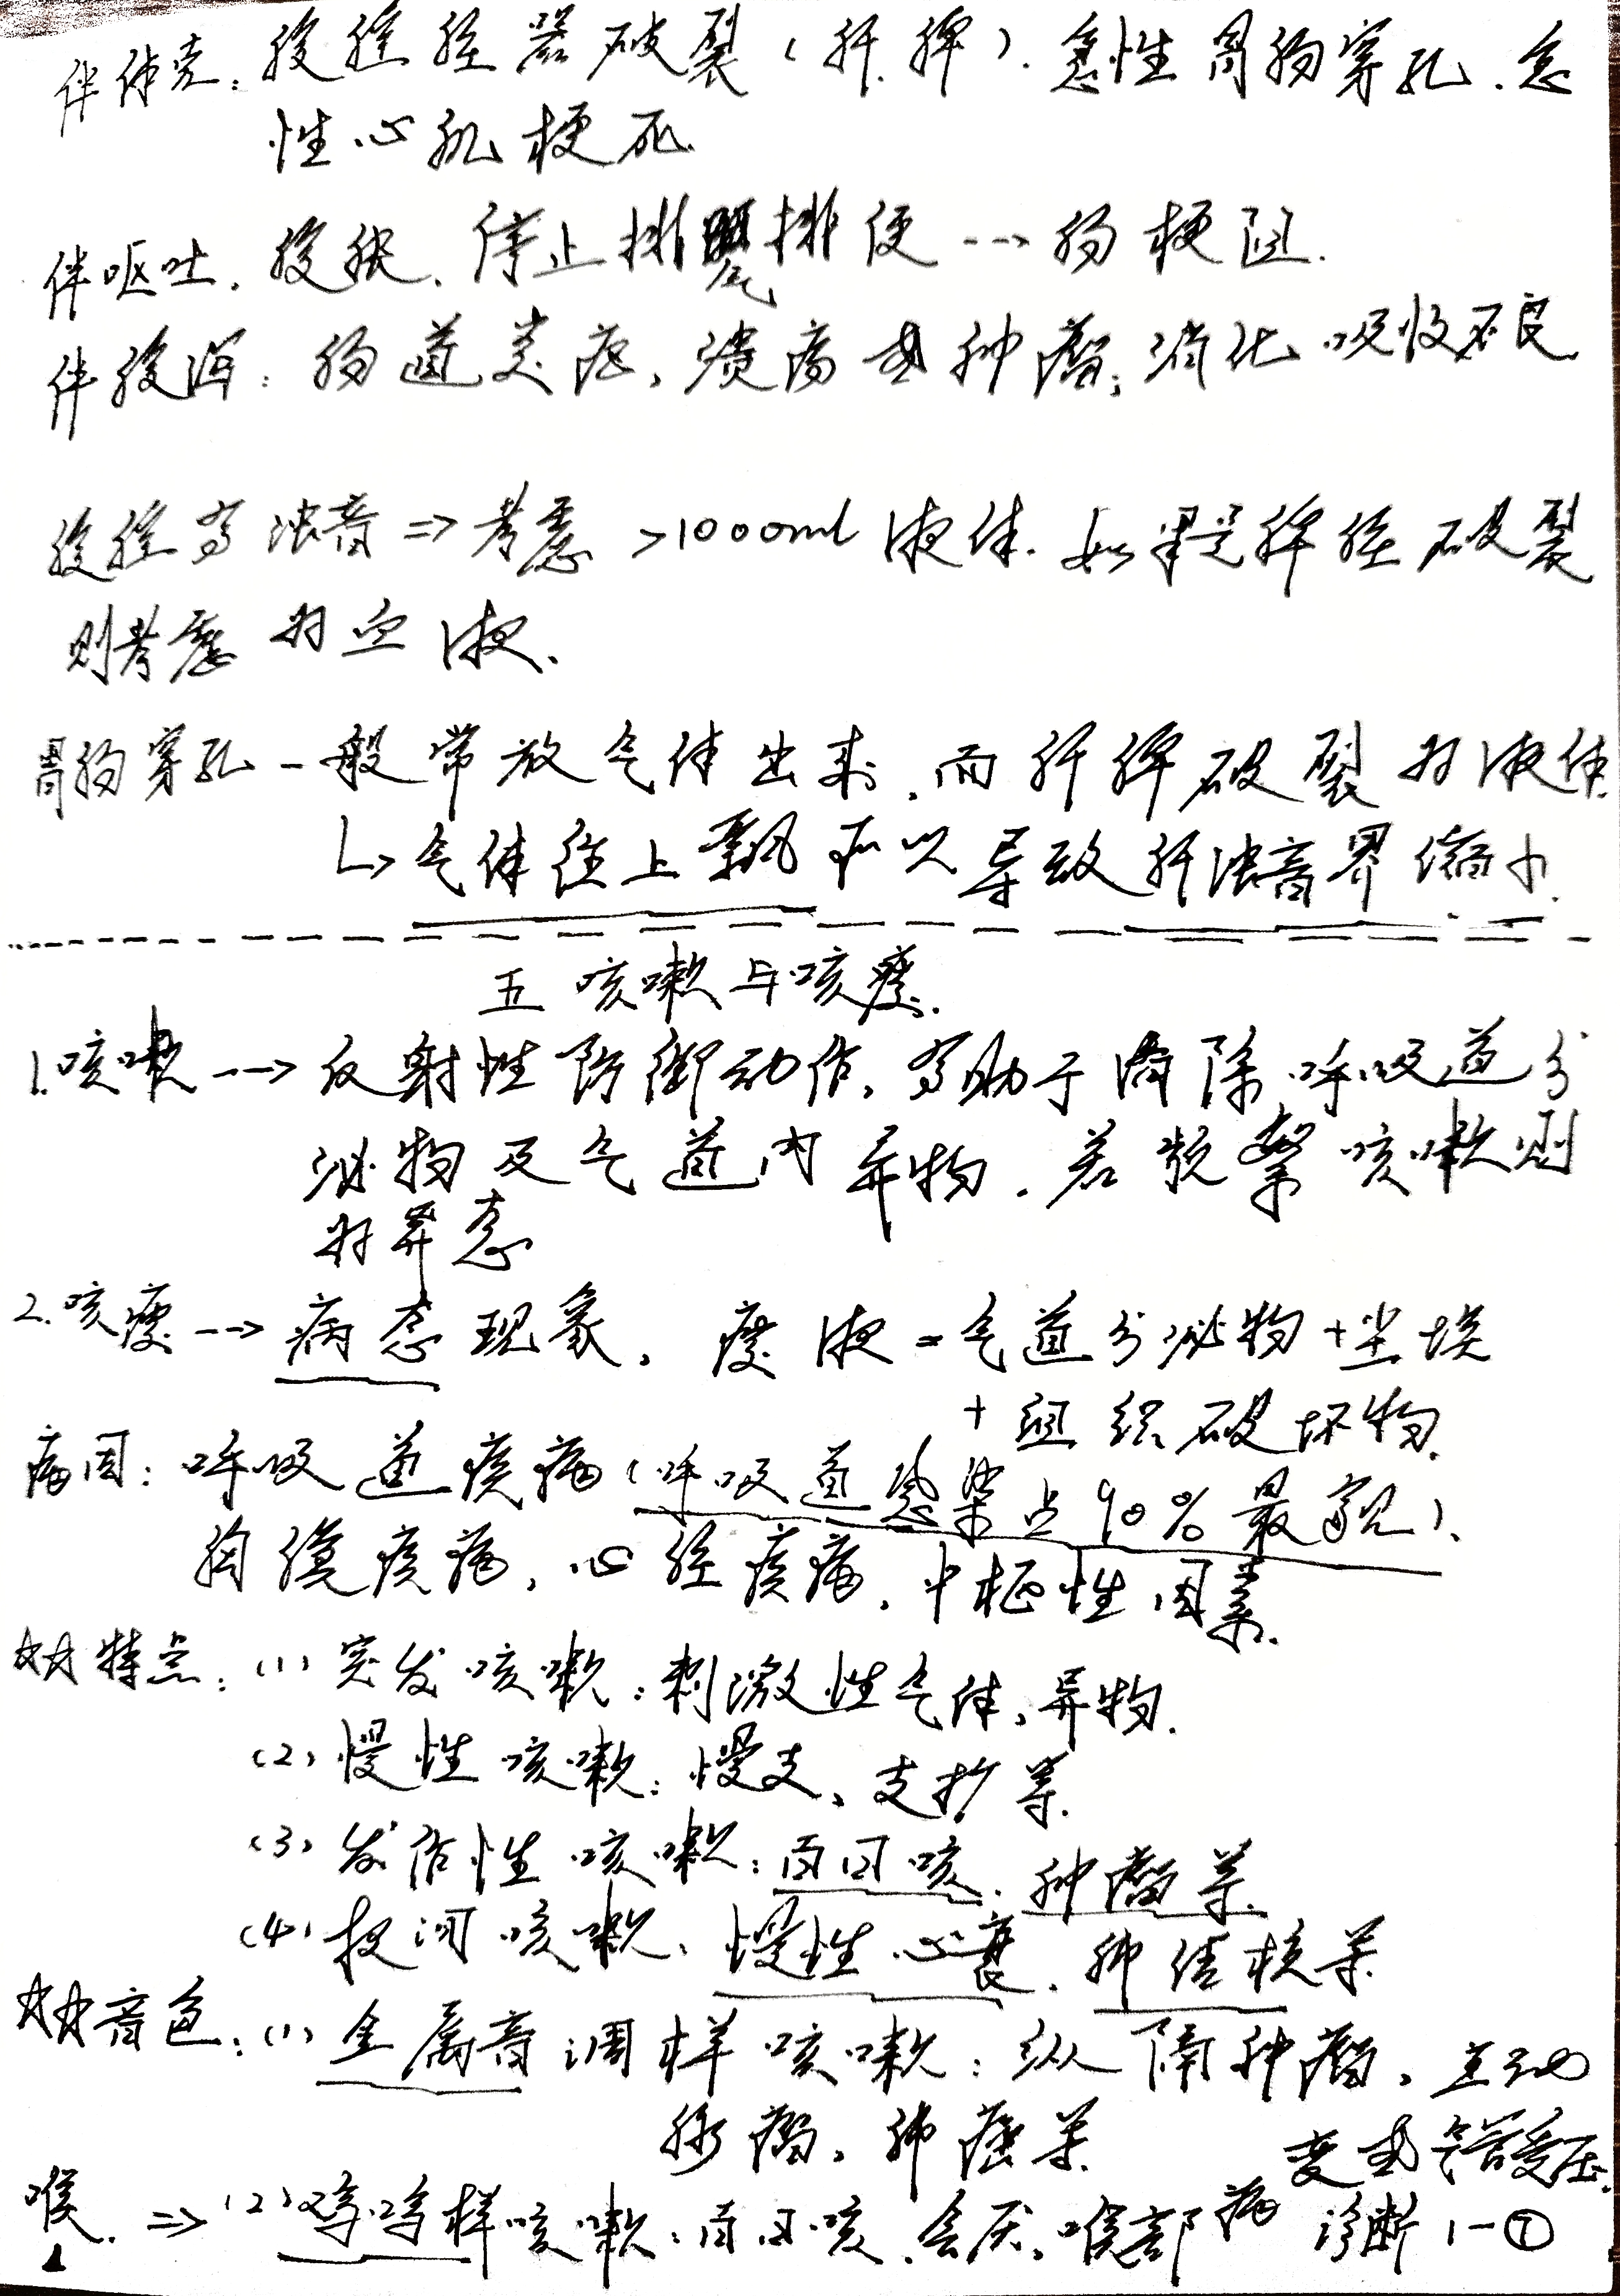 伴休克：腹腔脏器破裂（肝.脾）.急性胃肠穿孔.急
性心肌梗死.
伴呕吐.腹胀.停止排气排便--→肠梗阻.
伴腹泻：肠道炎症、溃疡或肿瘤；消化吸收不良.
腹腔有浊音⇒考虑 >1000ml 液体.如果是脾脏破裂
则考虑为血液.
胃肠穿孔一般常放气体出来，而肝脾破裂为液体.
↳气体往上飘 所以导致肝浊音界缩小.
五 咳嗽与咳痰.
1.咳嗽--→反射性防御动作，有助于清除呼吸道分
泌物及气道内异物.若频繁咳嗽则
为异态
2.咳痰--→病态现象，痰液=气道分泌物+尘埃
+组织破坏物.
病因：呼吸道疾病（呼吸道感染占90%最常见）、
胸膜疾病，心脏疾病，中枢性因素.
☆☆特点：(1)突发咳嗽：刺激性气体，异物.
(2)慢性咳嗽：慢支、支扩等.
(3)发作性咳嗽：百日咳、肿瘤等.
(4)夜间咳嗽、慢性心衰、肺结核等
☆☆音色：(1)金属音调样咳嗽：纵隔肿瘤，主动
脉瘤，肺癌等
变或气管受压.
喉.⇒(2)鸡鸣样咳嗽：百日咳、会厌、喉部病
诊断1-⑦